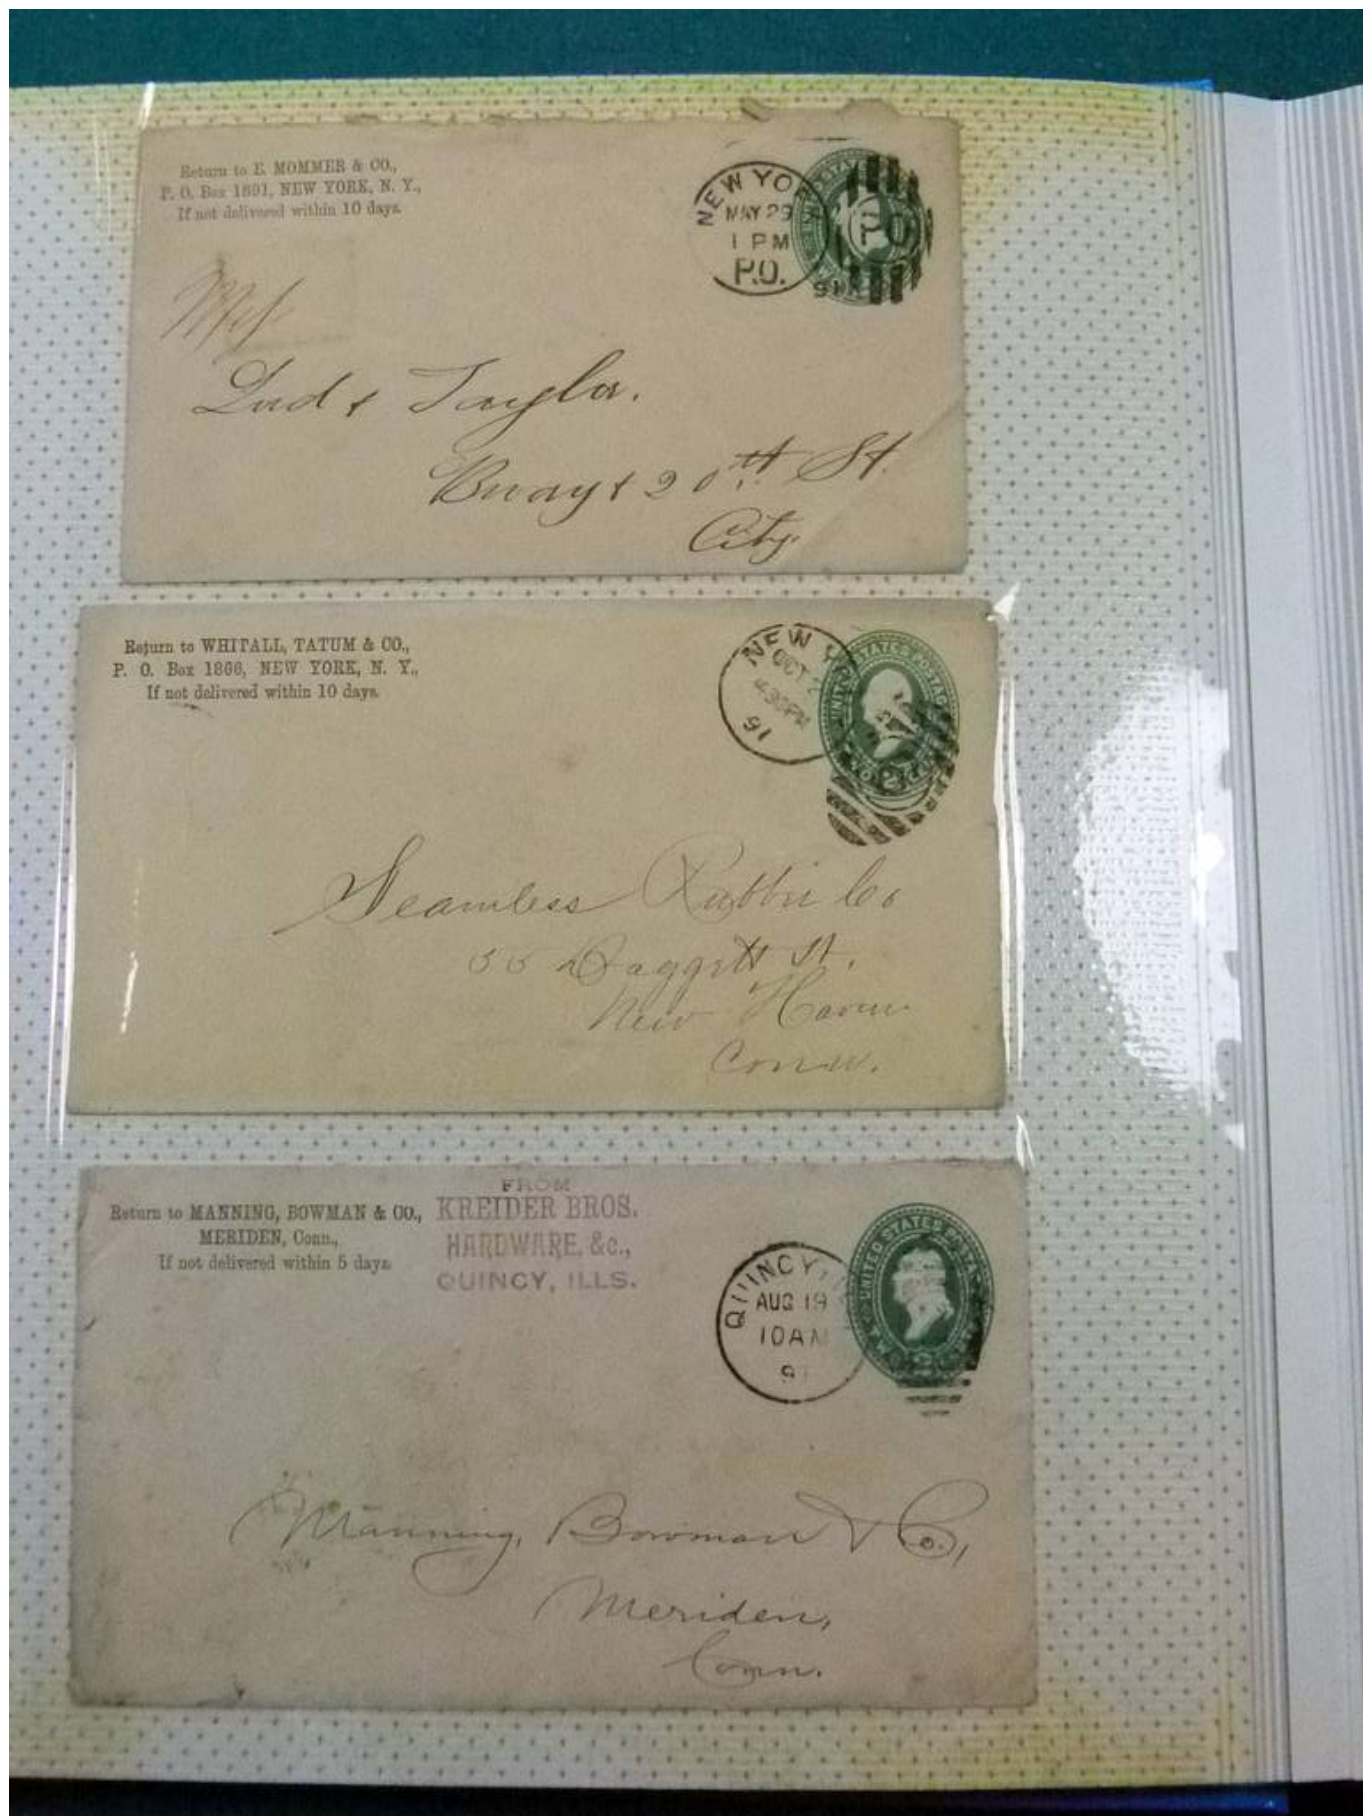 Return to E. MOMMER & CO.,
P. O. Box 1891, NEW YORK, N. Y.,
If not delivered within 10 days.
NEW YO
MAY 29
1 PM
P.O.
P O
Lad & Taylor.
Bway & 20th St.
City.
Return to WHITALL, TATUM & CO.,
P. O. Box 1866, NEW YORK, N. Y.,
If not delivered within 10 days.
NEW Y
OCT 2
4 30 PM
91
UNITED STATES POSTAGE
Seamless Rubber Co
55 Daggett St.
New Haven
Conn.
Return to MANNING, BOWMAN & CO.,
MERIDEN, Conn.,
If not delivered within 5 days.
FROM
KREIDER BROS.
HARDWARE, &c.,
QUINCY, ILLS.
QUINCY
AUG 19
10 AM
91
UNITED STATES POSTAGE
2
Manning, Bowman & Co.,
Meriden,
Conn.